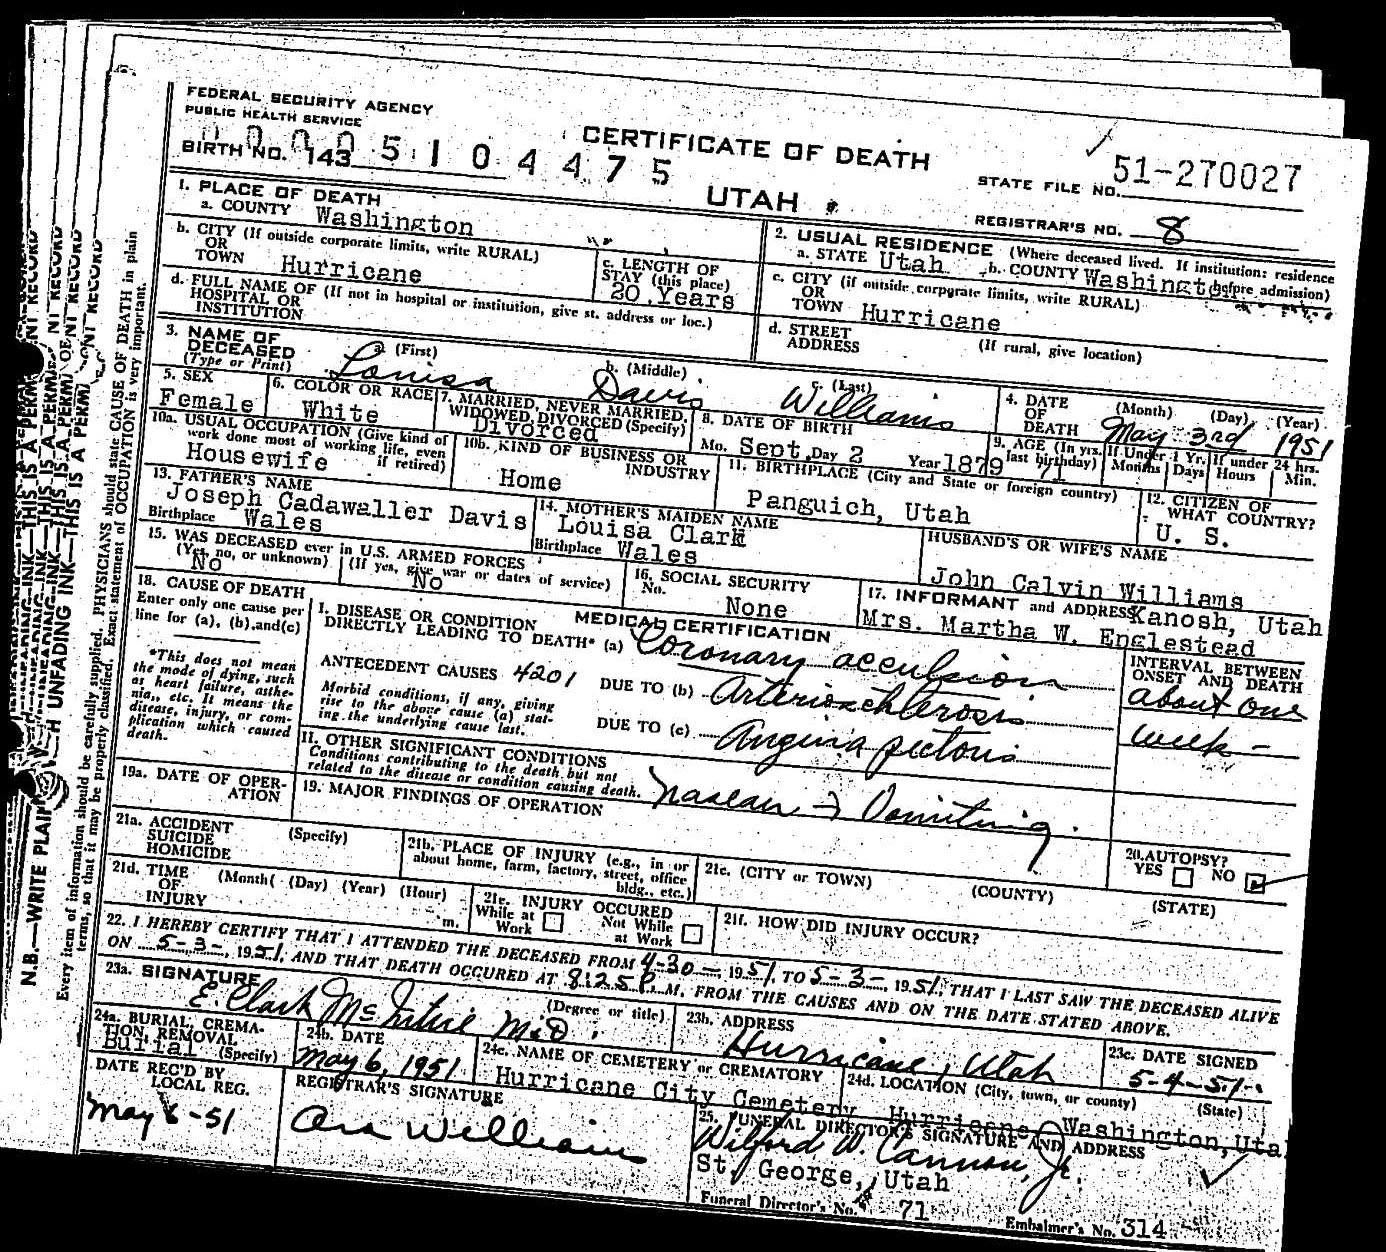 FEDERAL SECURITY AGENCY
PUBLIC HEALTH SERVICE
CERTIFICATE OF DEATH
UTAH
BIRTH NO. 143
00005104475
STATE FILE NO. 51-270027
REGISTRAR'S NO. 8
1. PLACE OF DEATH
a. COUNTY Washington
b. CITY (If outside corporate limits, write RURAL)
OR
TOWN Hurricane
c. LENGTH OF
STAY (this place)
20 Years
d. FULL NAME OF (If not in hospital or institution, give st. address or loc.)
HOSPITAL OR
INSTITUTION
2. USUAL RESIDENCE (Where deceased lived. If institution: residence
a. STATE Utah b. COUNTY Washington before admission)
c. CITY (if outside corporate limits, write RURAL)
OR
TOWN Hurricane
d. STREET
ADDRESS (If rural, give location)
3. NAME OF
DECEASED
(Type or Print)
a. (First) b. (Middle) c. (Last)
Louisa Davis Williams
4. DATE
OF
DEATH
(Month) (Day) (Year)
May 3rd 1951
5. SEX
Female
6. COLOR OR RACE
White
7. MARRIED, NEVER MARRIED,
WIDOWED, DIVORCED (Specify)
Divorced
8. DATE OF BIRTH
Mo. Sept. Day 2 Year 1879
9. AGE (In yrs.
last birthday)
71
If Under 1 Yr.
Months Days
If under 24 hrs.
Hours Min.
10a. USUAL OCCUPATION (Give kind of
work done most of working life, even
if retired)
Housewife
10b. KIND OF BUSINESS OR
INDUSTRY
Home
11. BIRTHPLACE (City and State or foreign country)
Panguich, Utah
12. CITIZEN OF
WHAT COUNTRY?
U. S.
13. FATHER'S NAME
Joseph Cadawaller Davis
Birthplace Wales
14. MOTHER'S MAIDEN NAME
Louisa Clark
Birthplace Wales
HUSBAND'S OR WIFE'S NAME
John Calvin Williams
15. WAS DECEASED ever in U.S. ARMED FORCES
(Yes, no, or unknown) (If yes, give war or dates of service)
No No
16. SOCIAL SECURITY
No.
None
17. INFORMANT and ADDRESS Kanosh, Utah
Mrs. Martha W. Englestead
18. CAUSE OF DEATH
Enter only one cause per
line for (a), (b), and (c)
*This does not mean
the mode of dying, such
as heart failure, asthe-
nia, etc. It means the
disease, injury, or com-
plication which caused
death.
MEDICAL CERTIFICATION
I. DISEASE OR CONDITION
DIRECTLY LEADING TO DEATH* (a) Coronary acculsion
ANTECEDENT CAUSES 4201
DUE TO (b) Arterioschlerosis
Morbid conditions, if any, giving
rise to the above cause (a) stat-
ing the underlying cause last.
DUE TO (c) Angina pectoris
INTERVAL BETWEEN
ONSET AND DEATH
about one
week -
II. OTHER SIGNIFICANT CONDITIONS
Conditions contributing to the death but not
related to the disease or condition causing death.
Nasean + Vomiting.
19a. DATE OF OPER-
ATION
19. MAJOR FINDINGS OF OPERATION
20. AUTOPSY?
YES NO
21a. ACCIDENT (Specify)
SUICIDE
HOMICIDE
21b. PLACE OF INJURY (e.g., in or
about home, farm, factory, street, office
bldg., etc.)
21c. (CITY or TOWN) (COUNTY) (STATE)
21d. TIME (Month( (Day) (Year) (Hour)
OF
INJURY m.
21e. INJURY OCCURED
While at Work Not While at Work
21f. HOW DID INJURY OCCUR?
22. I HEREBY CERTIFY THAT I ATTENDED THE DECEASED FROM 4-30-, 1951, TO 5-3-, 1951, THAT I LAST SAW THE DECEASED ALIVE
ON 5-3-, 1951, AND THAT DEATH OCCURED AT 8:25 P. M. FROM THE CAUSES AND ON THE DATE STATED ABOVE.
23a. SIGNATURE (Degree or title)
E. Clark McIntire M.D.
23b. ADDRESS
Hurricane, Utah
23c. DATE SIGNED
5-4-51
24a. BURIAL, CREMA-
TION, REMOVAL
Burial (Specify)
24b. DATE
May 6, 1951
24c. NAME OF CEMETERY or CREMATORY
Hurricane City Cemetery
24d. LOCATION (City, town, or county) (State)
Hurricane, Washington, Uta
DATE REC'D BY
LOCAL REG.
May 6-51
REGISTRAR'S SIGNATURE
Ora Williams
25. FUNERAL DIRECTOR'S SIGNATURE AND ADDRESS
Wilford W. Cannon, Jr.
St. George, Utah
Funeral Director's No. 71
Embalmer's No. 314
N.B.—WRITE PLAINLY WITH UNFADING INK—THIS IS A PERMANENT RECORD
Every item of information should be carefully supplied. PHYSICIANS should state CAUSE OF DEATH in plain
terms, so that it may be properly classified. Exact statement of OCCUPATION is very important.